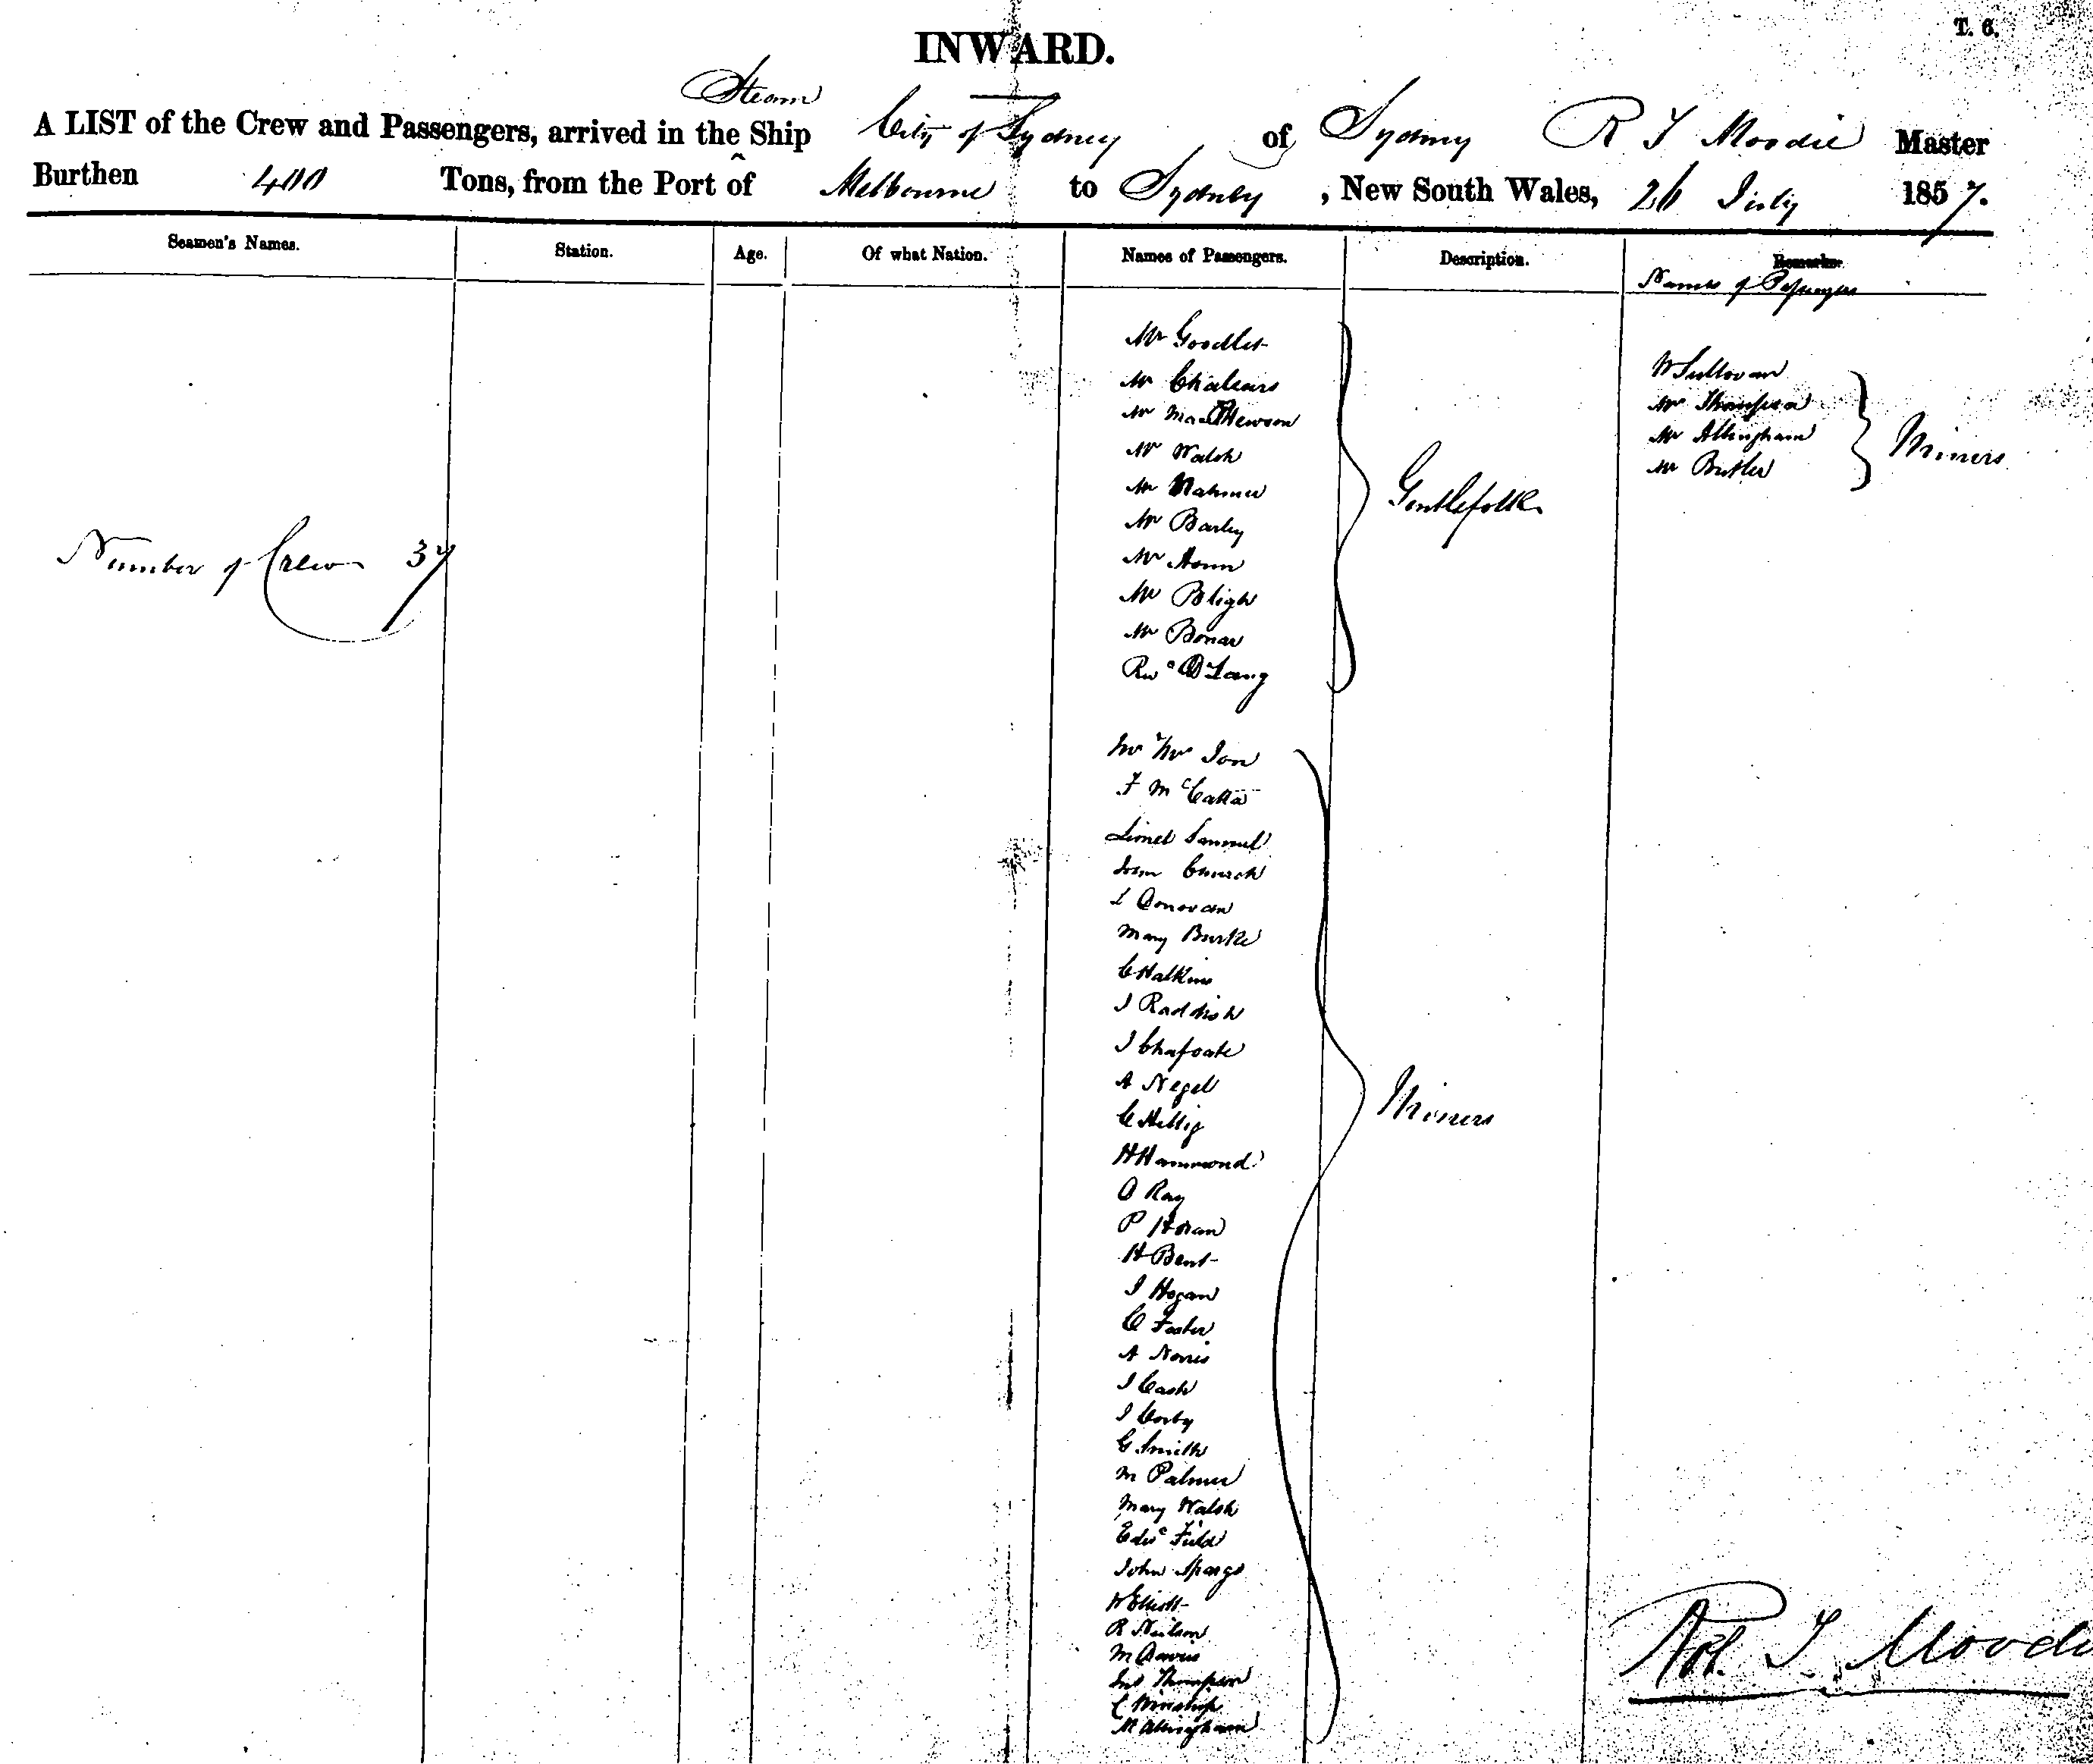 T. 6.
INWARD.
Steam
A LIST of the Crew and Passengers, arrived in the Ship City of Sydney of Sydney R T Moodie Master
Burthen 400 Tons, from the Port of Melbourne to Sydney, New South Wales, 26 July 1857.
Seamen's Names. Station. Age. Of what Nation. Names of Passengers. Description. Remarks.
Names of Passengers
Mr Goodlet
Mr
Mr Matthewson
Mr Walsh
Mr
Mr Barley
Mr
Mr Bligh
Mr Bonar
Revd Dr Lang
Gentlefolk
W Sullovan
Mr Thompson
Mr Allingham
Mr Butler
Miners
Number of Crew 37
Mr
F
Lionel Samuel
John Church
Donovan
Mary Burke
C Halkins
J Raddish
J
A Negel
C Hellig
H Hammond
Ray
P Horan
H Bent
J Hogan
C Foster
A Norris
J Cash
J Corby
G Smith
M Palmer
Mary Walsh
Edwd Field
John Spargo
W Elliott
R Neilson
M Davis
Jno Thompson
C Winship
M Allingham
Miners
Robt T. Moodie